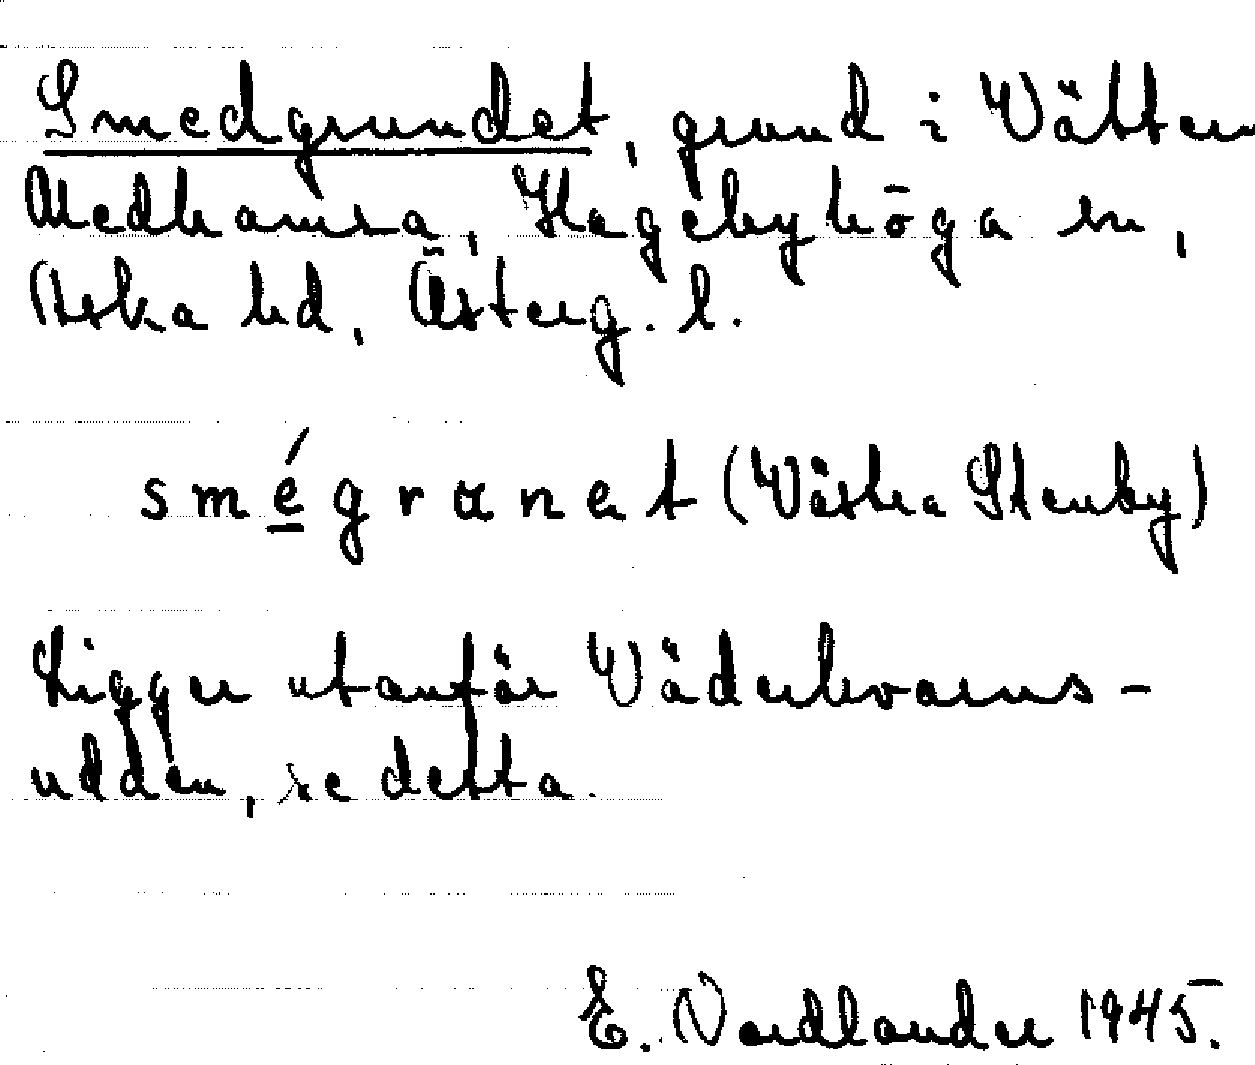 Smedgrundet, grund i Vättern
Medhamra, Hagebyhöga sn,
Aska hd, Österg. l.
smégranet (Västra Stenby)
Ligger utanför Väderkvarns-
udden, se detta.
E. Nordlander 1945.